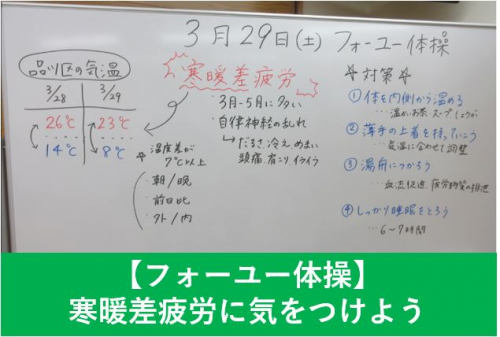 3月29日(土) フォーユー体操
品川区の気温
3/28 3/29
26℃ 23℃
14℃ 8℃
寒暖差疲労
・3月-5月に多い
・自律神経の乱れ
→だるさ、冷え、めまい
頭痛 肩こり イライラ
☆温度差が
7℃以上
・朝/晩
・前日比
・外/内
☆対策☆
①体を内側から温める
…温かいお茶・スープ・しょうが
②薄手の上着を持っていこう
…気温に合わせて調整
③湯舟につかろう
…血流促進、疲労物質の排泄
④しっかり睡眠をとろう
…6〜7時間
【フォーユー体操】
寒暖差疲労に気をつけよう